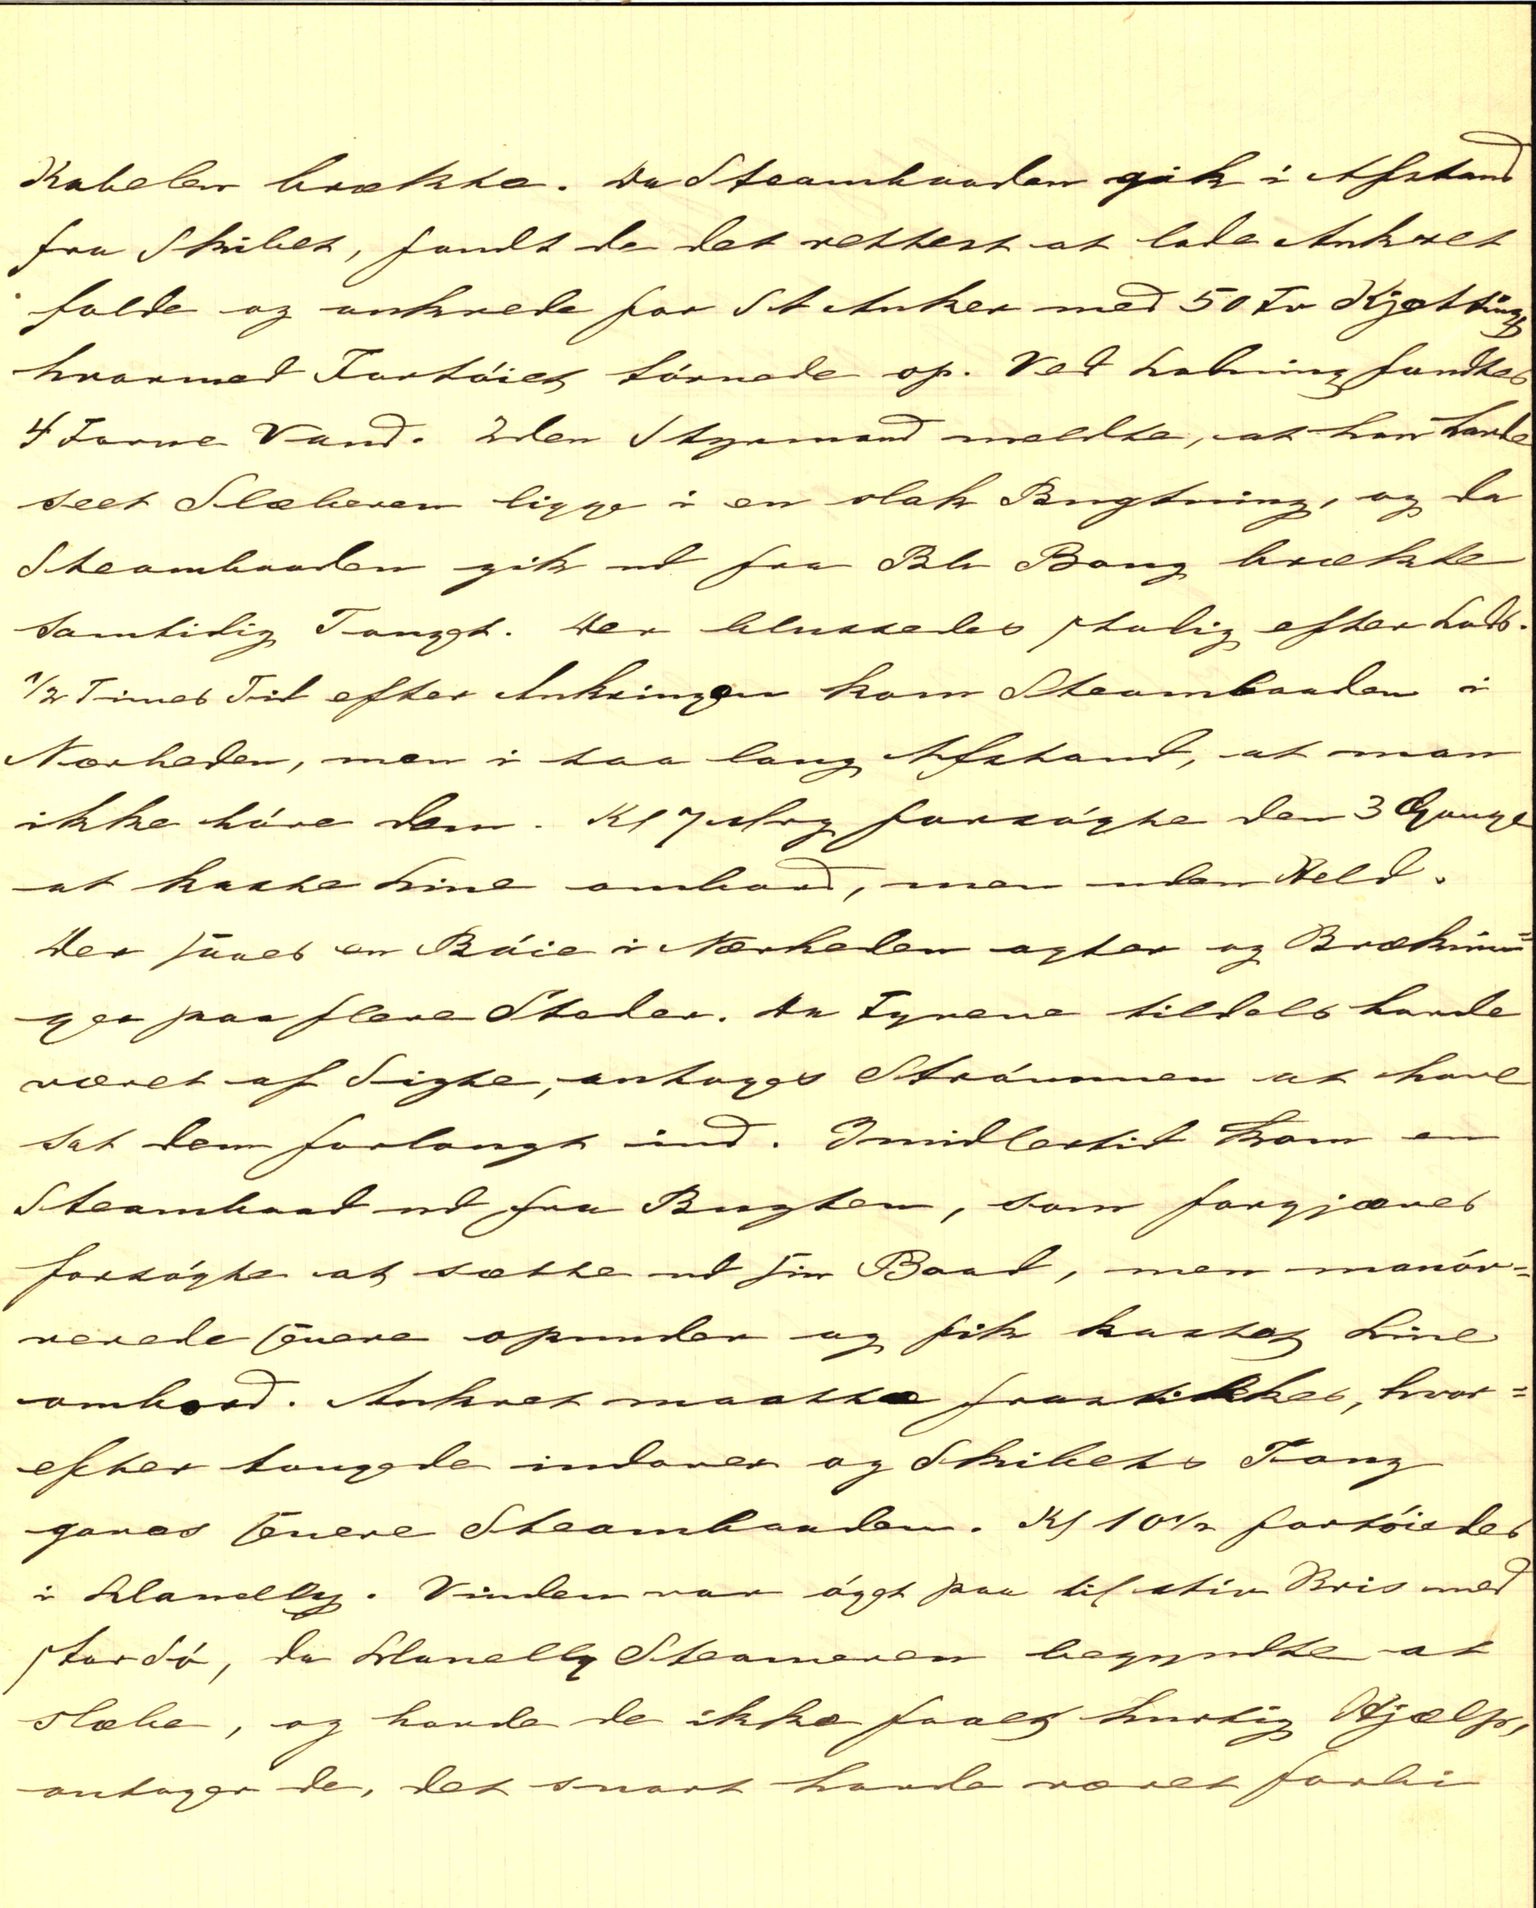 Kabelen brækkte. Da Steambaaden gik i Afstand
fra Skibet, fandt de det rettest at lade Ankret
falde og ankrede for St Anker med 50 Fv Kjetting
hvormed Fartöiet törnede op. Ved Lodning fandtes
4 Favne Vand. 2den Styrmand meldte, at han havde
seet Slæberen ligge i en slak Bugtning, og da
Steambaaden gik ud fra Bb Boug brækkte
samtidig Tauget. Der blussedes stadig efter Lods.
1/2 Times Tid efter Ankringen kom Steambaaden i
Nærheden, men i saa lang Afstand, at man
ikke höre dem. Kl 7 Mrg forsögte den 3 Gange
at kaste Line ombord, men uden Held.
Der saaes en Böie i Nærheden agter og Bræknin=
ger paa flere Steder. Da Fyrene tildels havde
været af Sigte, antoges Strömmen at have
sat dem forlangt ind. Imidlertid kom en
Steambaad ud fra Bugten, som forgjæves
forsögte at sætte ud sin Baad, men manöv=
rerede senere opunder og fik kastet Line
ombord. Ankret maatte frastikkes, hvor=
efter taugede indover og Skibets Taug
gaves senere Steambaaden. Kl 10 1/2 fortöiedes
i Llanelly. Vinden var öget paa til stiv Bris med
stor Sö, da Llanelly Steameren begyndte at
slæbe, og havde de ikke faaet hurtig Hjælp,
antager de, det snart havde været forbi